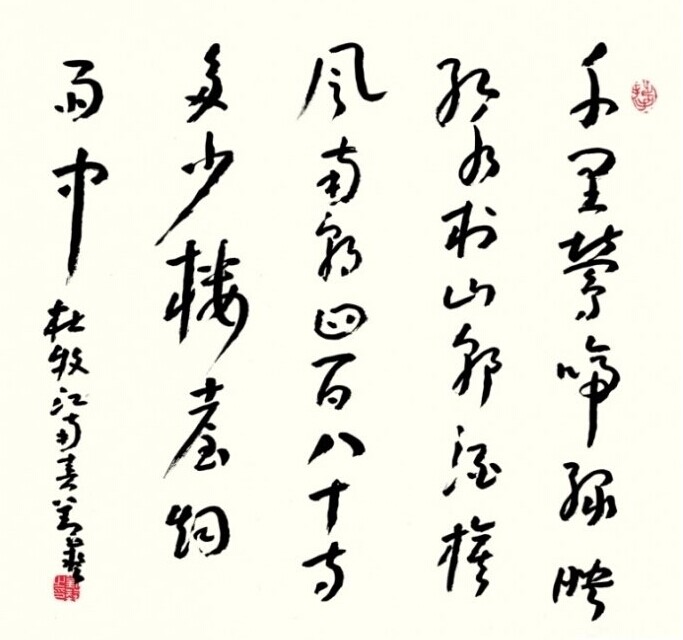 千里鶯啼綠映
紅水村山郭酒旗
風南朝四百八十寺
多少樓臺烟
雨中 杜牧江南春